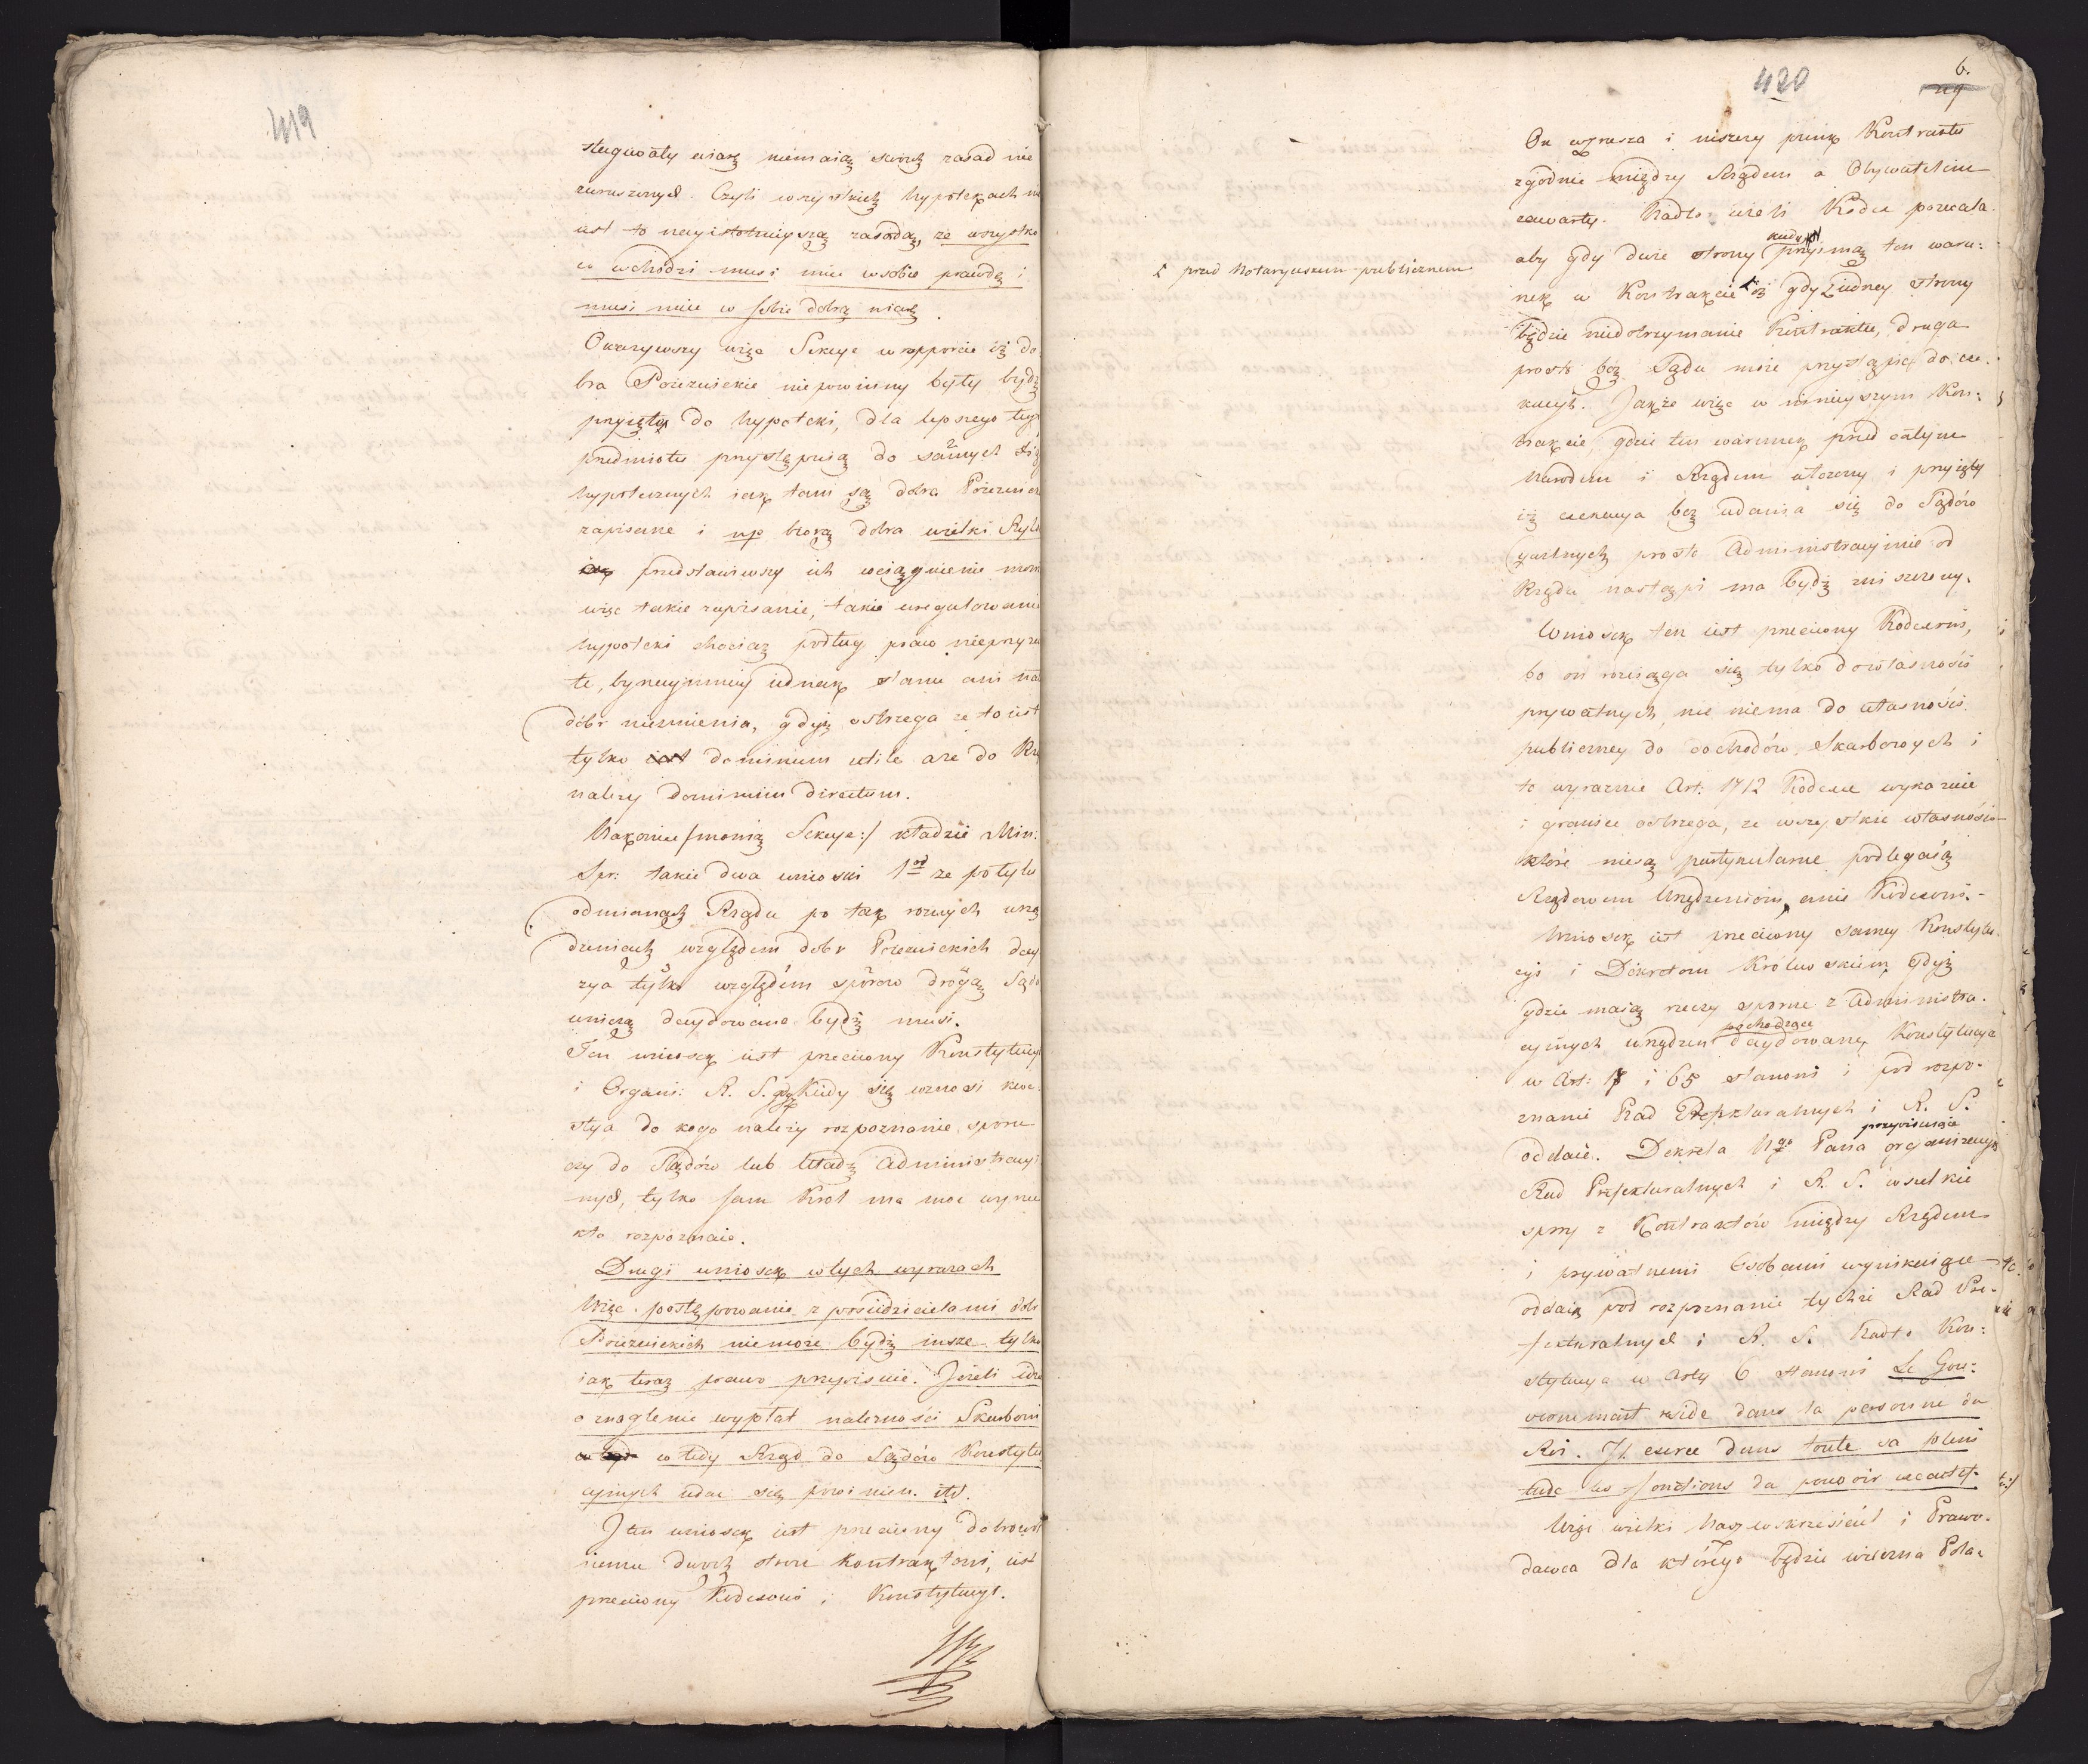 419
sługiwały wiarę niemaią swoich zasad nie
zuruszonych. Czyli wszystkich hypotekach nie
iest to nayistotnieyszą zasadą, że wszystko
co wchodzi musi mieć w sobie prawdę i
musi mieć w sobie dobrą wiarę.
Okazywszy więc Sekcye w rapporcie iż do
bra Poiezuickie niepowinny były bydź
przyięte do hypoteki, dla lepszego tego
przedmiotu przystępuią do samych
hypotecznych iak tam są dobra Poiezuick
zapisane i np biorą dobra wielki Ryb
przedstawiwszy ich wciągnienie
więc takie zapisanie, takie uregulowanie
hypoteki chociaż podług prawa nieprzyzw
te, bynaymniey iednak stanu ani na
dóbr niezmienia, gdyż ostrzega że to iest
tylko dominium utile a że do Rz
należy Dominium directum.
Nakoniec /:mówią Sekcye:/ kładzie Min:
Spr: takie dwa wnioski 1od że po tylu
odmianach Rządu po tak roznych urzą
dzeniach względem dobr Poiezuickich decy
zya tylko względem sporów drogą Sądo
wniczą decydowane bydź musi.
Ten wniosek iest przeciwny Konstytucyi
i Organi: R. S. gdy Kiedy się wznosi kwe
stya do kogo należy rozpoznanie sporu
czy do Sądów lub Władz Administracyi
nych, tylko sam Krol ma moc wyrzec
kto rozpoznaie.
Drugi wniosek w tych wyrazach
Więc postępowanie z posiedzicielami dobr
Poiezuickich niemoże bydź insze tylko
iak teraz prawo przepisuie. Jeżeli idzie
o naglenie wypłat należności Skarbowi
wtedy Rząd do Sądów Konstytu
cyinych udać się powinien. itd.
I ten wniosek iest przeciwny dobrowol
nemu dwóch stron Kontraktowi, iest
przeciwny Kodexowi i Konstytucyi.
420
6.
On wzrusza i niszczy punkt Kontraktu
zgodnie między Rządem a Obywatelem
zawarty. Nadto ieżeli Kodex pozwala
aby gdy dwie strony przyimą ten waru:
przed Notaryuszem publicznem
nek w Kontrakcie iż gdy z iedney strony
będzie niedotrzymanie Kontraktu, druga
prosto bez Sądu może przystąpić do exe.
kucyi. Jakże więc w ninieyszym Kon:
trakcie, gdzie ten warunek przed całym
Narodem i Rządem utczony i przyięty
iż exekucya bez udania się do Sądów
Cywilnych prosto Administracyinie od
Rządu nastąpi ma bydź zniszczony.
Wniosek ten iest przeciwny Kodexowi,
bo on rozciąga się tylko do własności
prywatnych, nic niema do własności
publiczney do dochodów Skarbowych i
to wyraznie Art: 1712 Kodexu wykazuie
i granice ostrzega, że wszystkie własności
które niesą partykularne podlegaią
Rządowem Urządzeniom, a nie Kodexowi.
Wniosek iest przeciwny samey Konstytu.
cyi i Dekretom Królewskiem, gdyż
gdzie maią rzeczy sporne z administra.
cyinych urządzeń pochodzące decydowane, Konstytucya
w Art: 17 i 65 stanowi i pod rozpo.
znanie Rad Prefekturalnych i R. S.
oddaie. Dekreta Ngo Pana przepisuiące organizacyą
Rad Prefekturalnych i R. S. wszelkie
spory z Kontraktów między Rządem
i prywatnemi Osobami wynikaiące
oddaią pod rozpoznanie tychże Rad Pre.
fekturalnych i R. S. Nadto Kon:
stytucya w Arty 6 stanowi Le Gou:
vernement reside dans la personne du
Roi. Il exerce dans toute sa pleni
tude les fonctions du pouvoir executif.
Więc wielki Nasz wskrzesiciel i Prawo.
dawca dla którego będzie wieczna Pola.